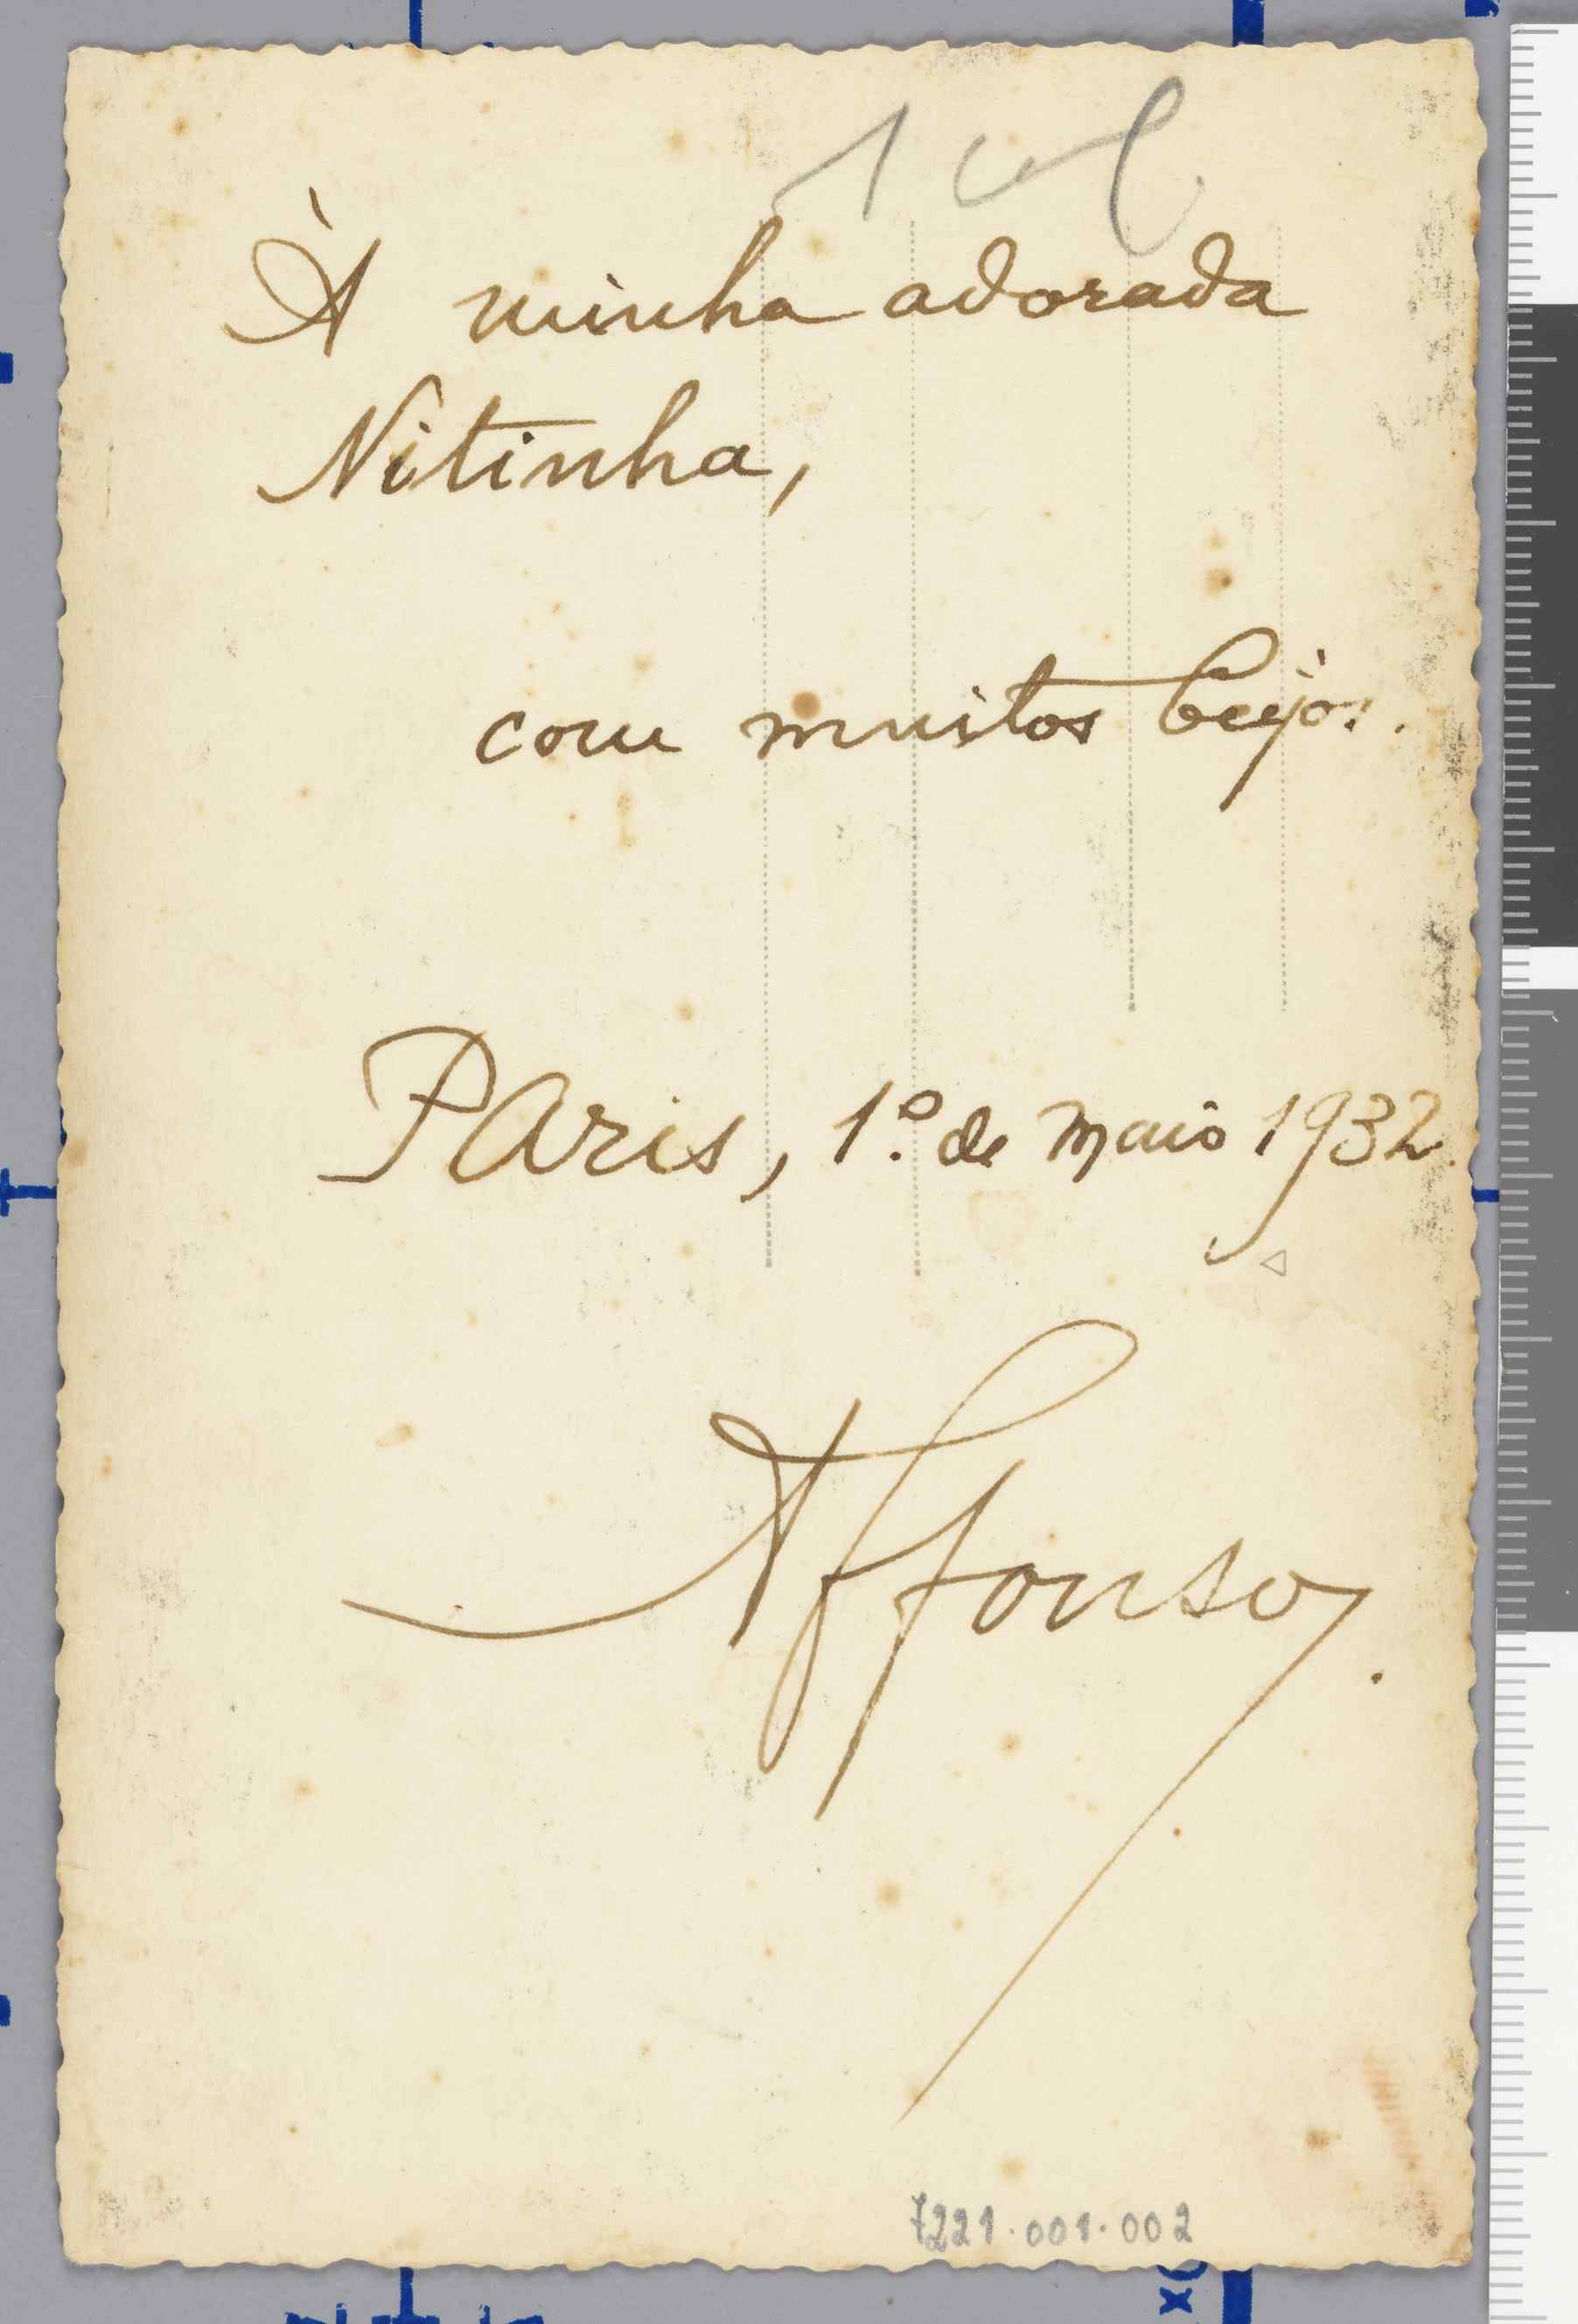 À minha adorada
Nitinha,
com muitos beijos.
Paris, 1.º de Maio 1932.
Affonso.
7221.001.002